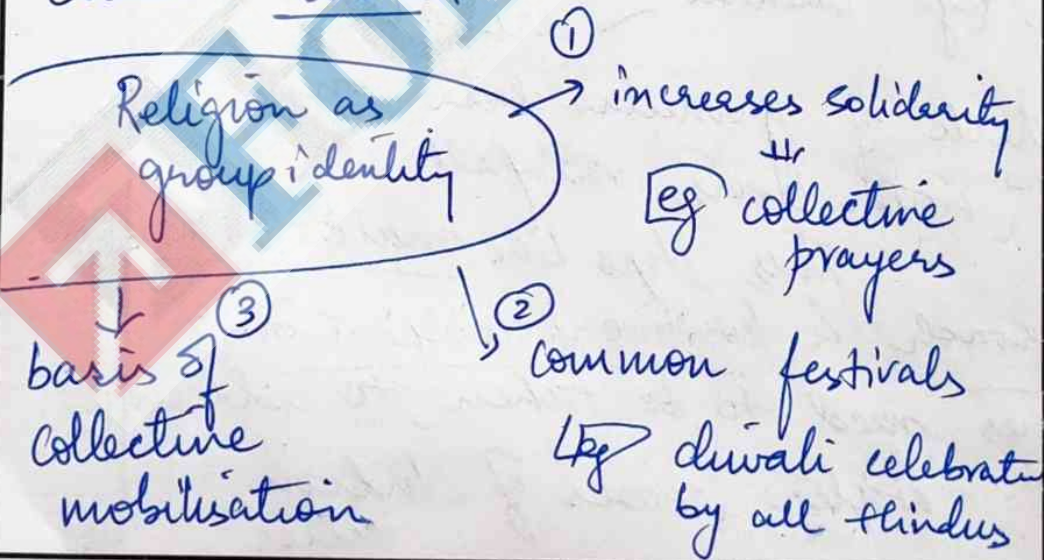 Religion as
group identity
①
→ increases solidarity
⇓
eg collective
prayers
②
common festivals
eg diwali celebrated
by all Hindus
③
basis of
collective
mobilisation